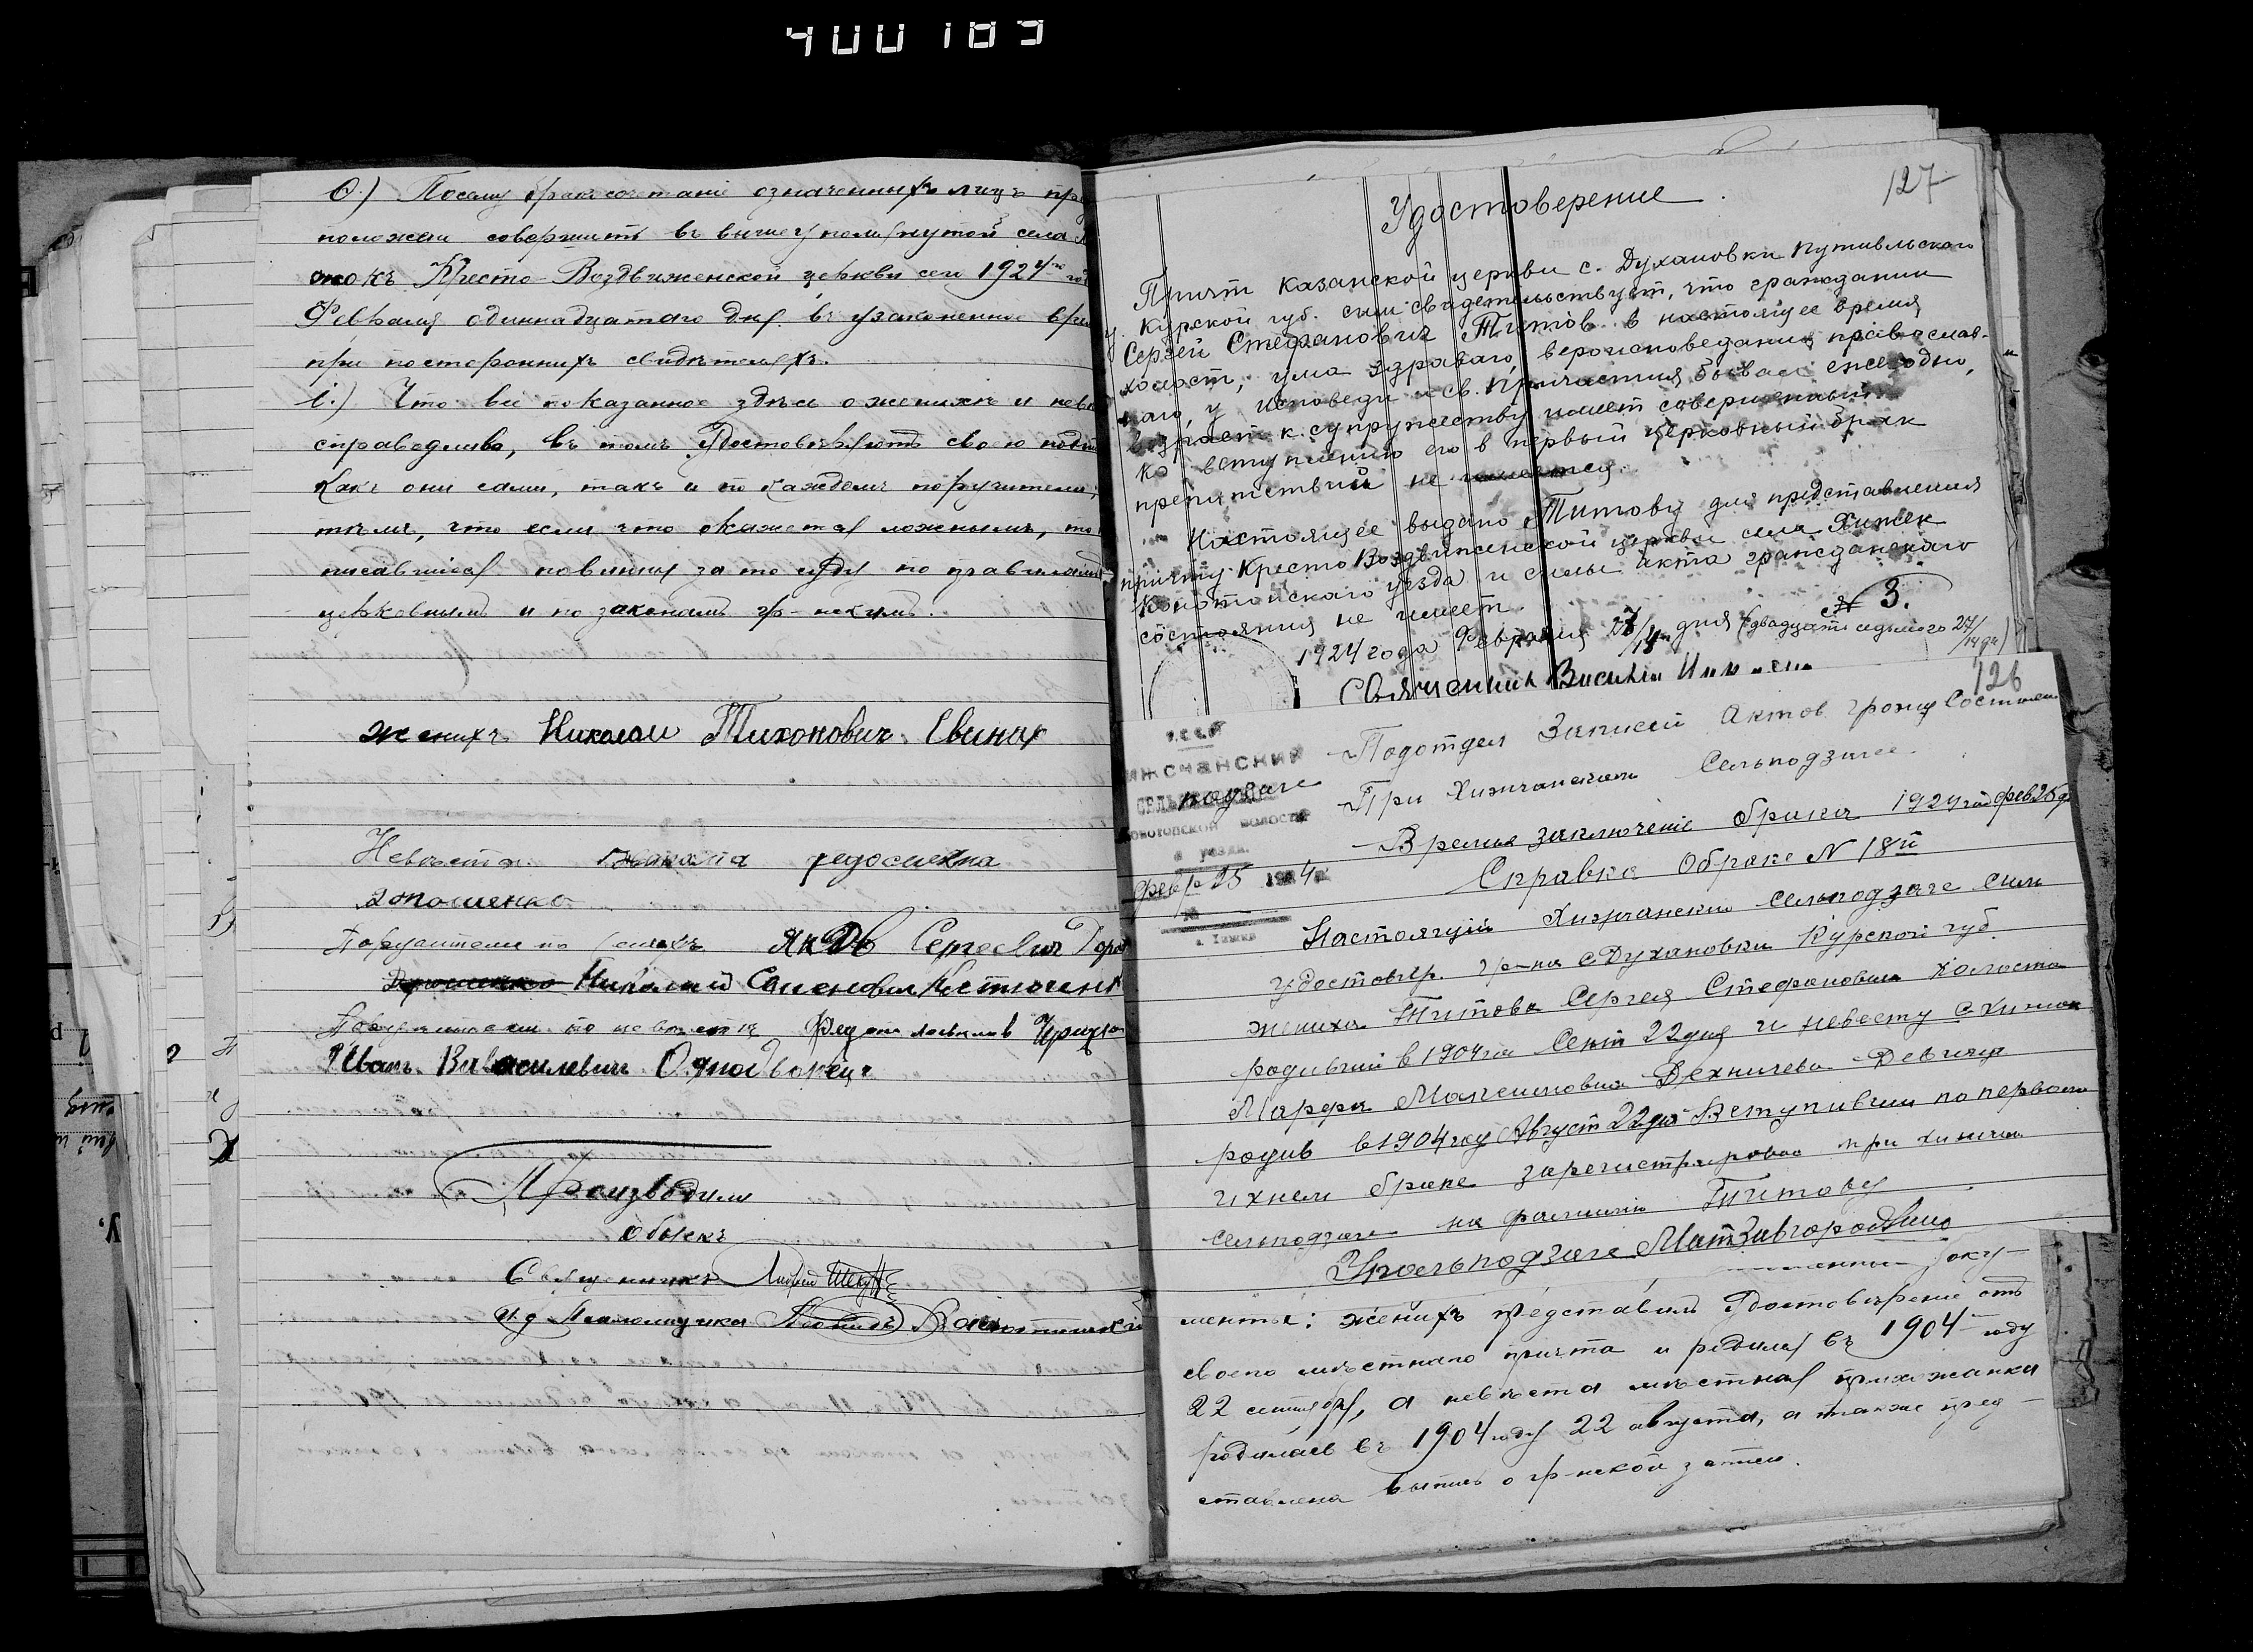 400189
Ѳ.) Посему бракосочетаніе означенныхъ лицъ
положен совершить въ вышеупомянутой села
Кресто-Воздвиженской церкви сего 1924го
Февраля одиннадцатаго дня въ узаконенное
при постороннихъ свидѣтеляхъ.
і.) Что все показанное здѣсь о женихѣ и
справедливо, въ томъ удостовѣряютъ своею
какъ они сами, такъ и по каждомъ поручители,
тѣмъ, что если что окажется ложнымъ, то
писавшіеся повинны за то суду по правиламъ
церковнымъ и по законамъ гр-нскимъ.
женихъ Николай Тихонович
Невѣста
Поручители по женихѣ Яков Сергеевич
Николай Семенович
Поручители по невѣстѣ
Иванъ Василевичъ Однодворецъ
Производили
обыскъ
Священникъ
и.д. Псаломщика
127
Удостоверение.
Причт Казанской церкви с. Духановки Путивльского
у. Курской губ. сим свидетельствует, что гражданин
Сергей Стефанович Титов в настоящее время
холост, ума здраваго, вероисповедания православ-
наго, у исповеди и св. Причастия бывал ежегодно,
возраст к супружеству имеет совершенный
ко вступлению его в первый церковный брак
препятствий не имеется.
Настоящее выдано Титову для представления
причту Кресто Воздвиженской церкви села Хижек
Конотопскаго уезда и силы акта гражданскаго
состояния не имеет.
№ 3.
1924 года Февраля 27/14 дня (двадцать седьмого 27/14 дн)
Священник Василий
126
Подотдел Записей Актов гражд Состояни
При Хижчанском Сельподзаге
Время заключение брака 1924 год фев 25 д
февр 25 1924
Справка о браке N 18й
Настоящим Хижчанский Сельподзаге сим
удостовер. гр-на с Духановки Курской губ.
жениха Титова Сергея Стефановича холоста
родивший в 1904 го Сент 22 дня и невесту с Хижок
Марфа Максимовна Девица
родив в 1904 году Август 22 дня Вступивши по первом
их нем браке зарегистрировано при хижчан
сельподзаге на фамилию Титову
менты: женихъ представилъ удостовѣреніе отъ
своего мѣстнаго причта и родился въ 1904 году
22 сентября, а невѣста мѣстная прихожанка
родилась въ 1904 году 22 августа, а также пред-
ставлена выпись о гр-нской записи.